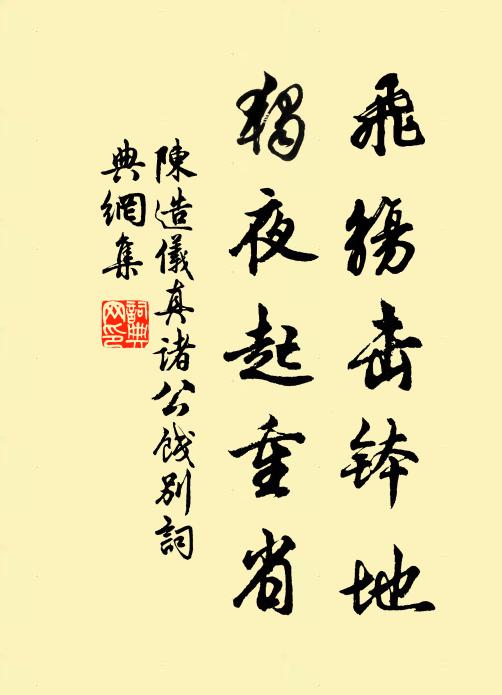 飛觴击鉢地
獨夜起重省
陳造儀真諸公餞別詞
典網集
詞典
网印